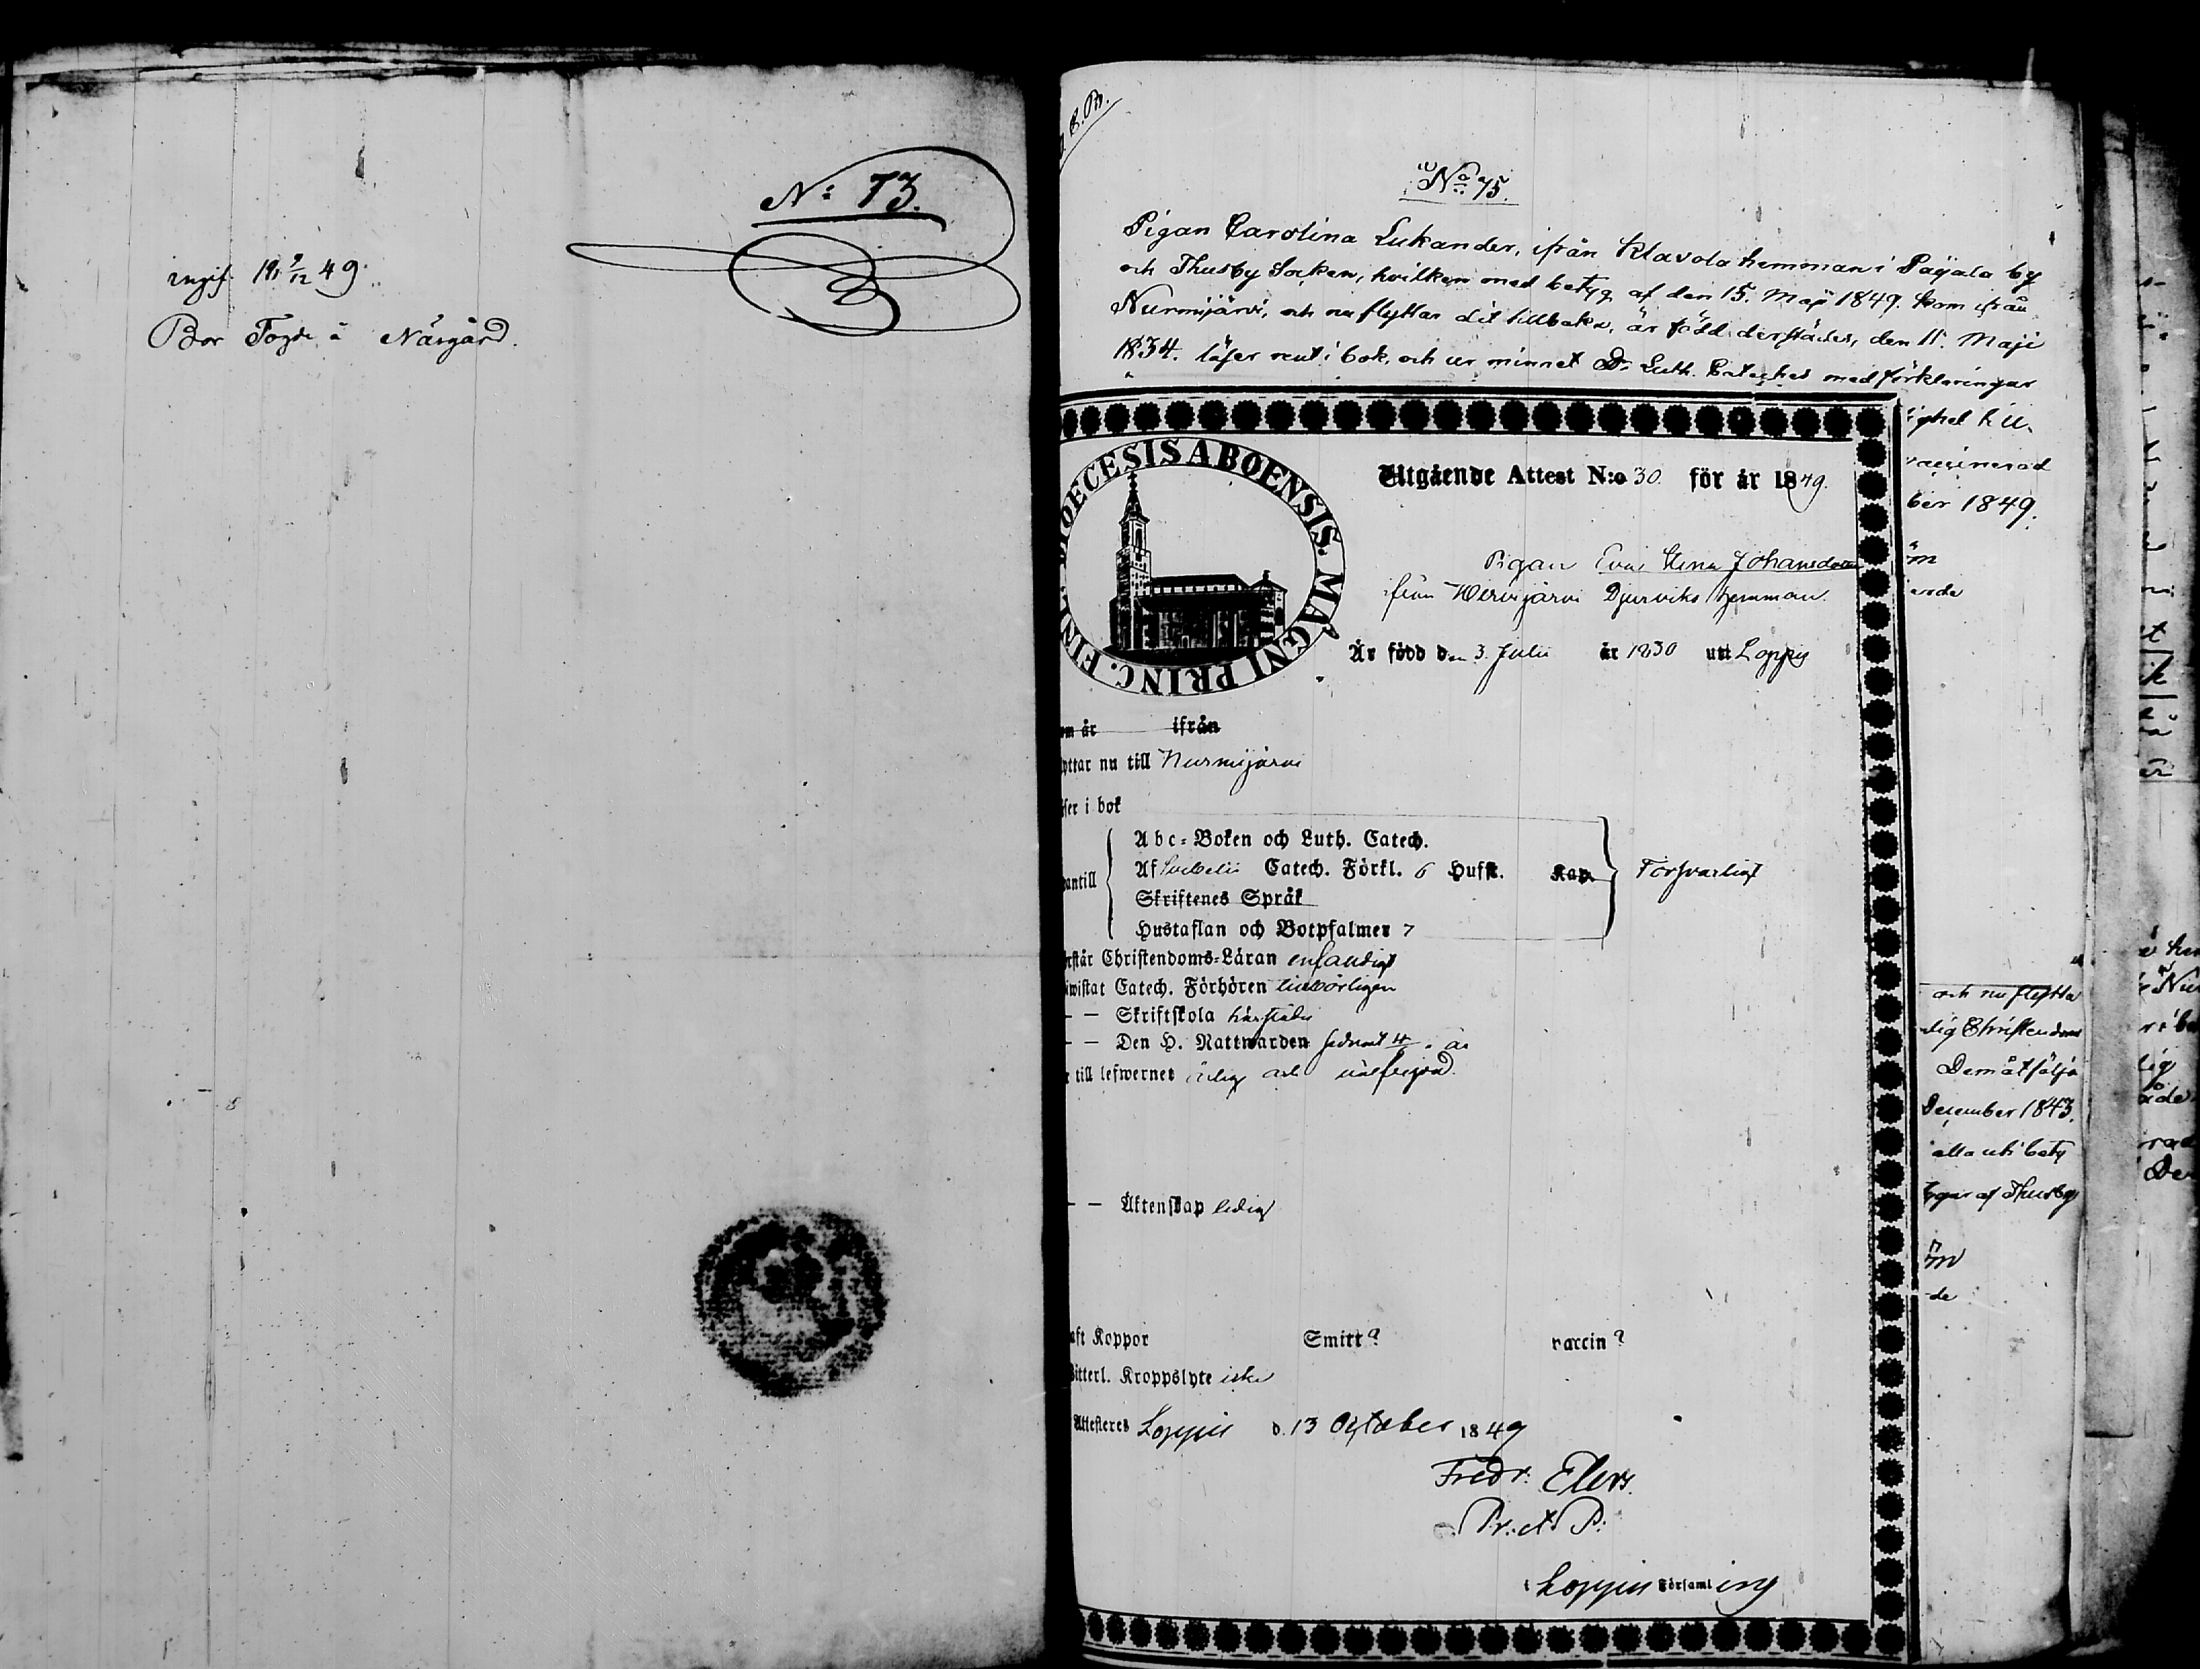 N: 73.
ingif. 18 9/12 49.
Bor Fogde å Näsgård.
No: 75.
Pigan Carolina Lukander, ifrån Klavola hemman i Pajala by
och Thusby Socken, hvilken med betyg af den 15. Maji 1849. kom ifrån
Nurmijärvi, och nu flyttar dit tillbaka, är född derstädes, den 11. Maji
1834. läser rent i bok, och ur minnet Dr. Luth. Cateches med förklaringar
ber 1849.
DIOECESIS ABOENSIS. MAGNI PRINC. FINL
Utgående Attest N:o 30. för år 1849.
Pigan Eva Stina Johansdotter
från Wirvijärvi Djurviks hemman.
Är född den 3. Julii år 1830 uti Loppis
om år ifrån
yttar nu till Nurmijärvi
äser i bok
Abc-Boken och Luth. Catech.
Af Svebelii Catech. Förkl. 6 Hufst. Kap. Försvarligt
antill
Skriftenes Språk
Hustaflan och Botpsalmer 7
rstår Christendoms-Läran enfaldigt
iwistat Catech. Förhören tillbörligen
– – Skriftskola härstädes
– – Den H. Nattwarden
till lefwernet ärlig och välfrejdad.
– – Äktenskap ledig
aft Koppor Smitt? vaccin?
itterl. Kroppslyte icke
Attesteres Loppis d. 13 October 1849
Fredr. Elers.
Pr. et P.
i Loppis Församling
och nu flytta
lig Christendom
Dem åtfölja
December 1843.
alla uti bety
gar af Thusby